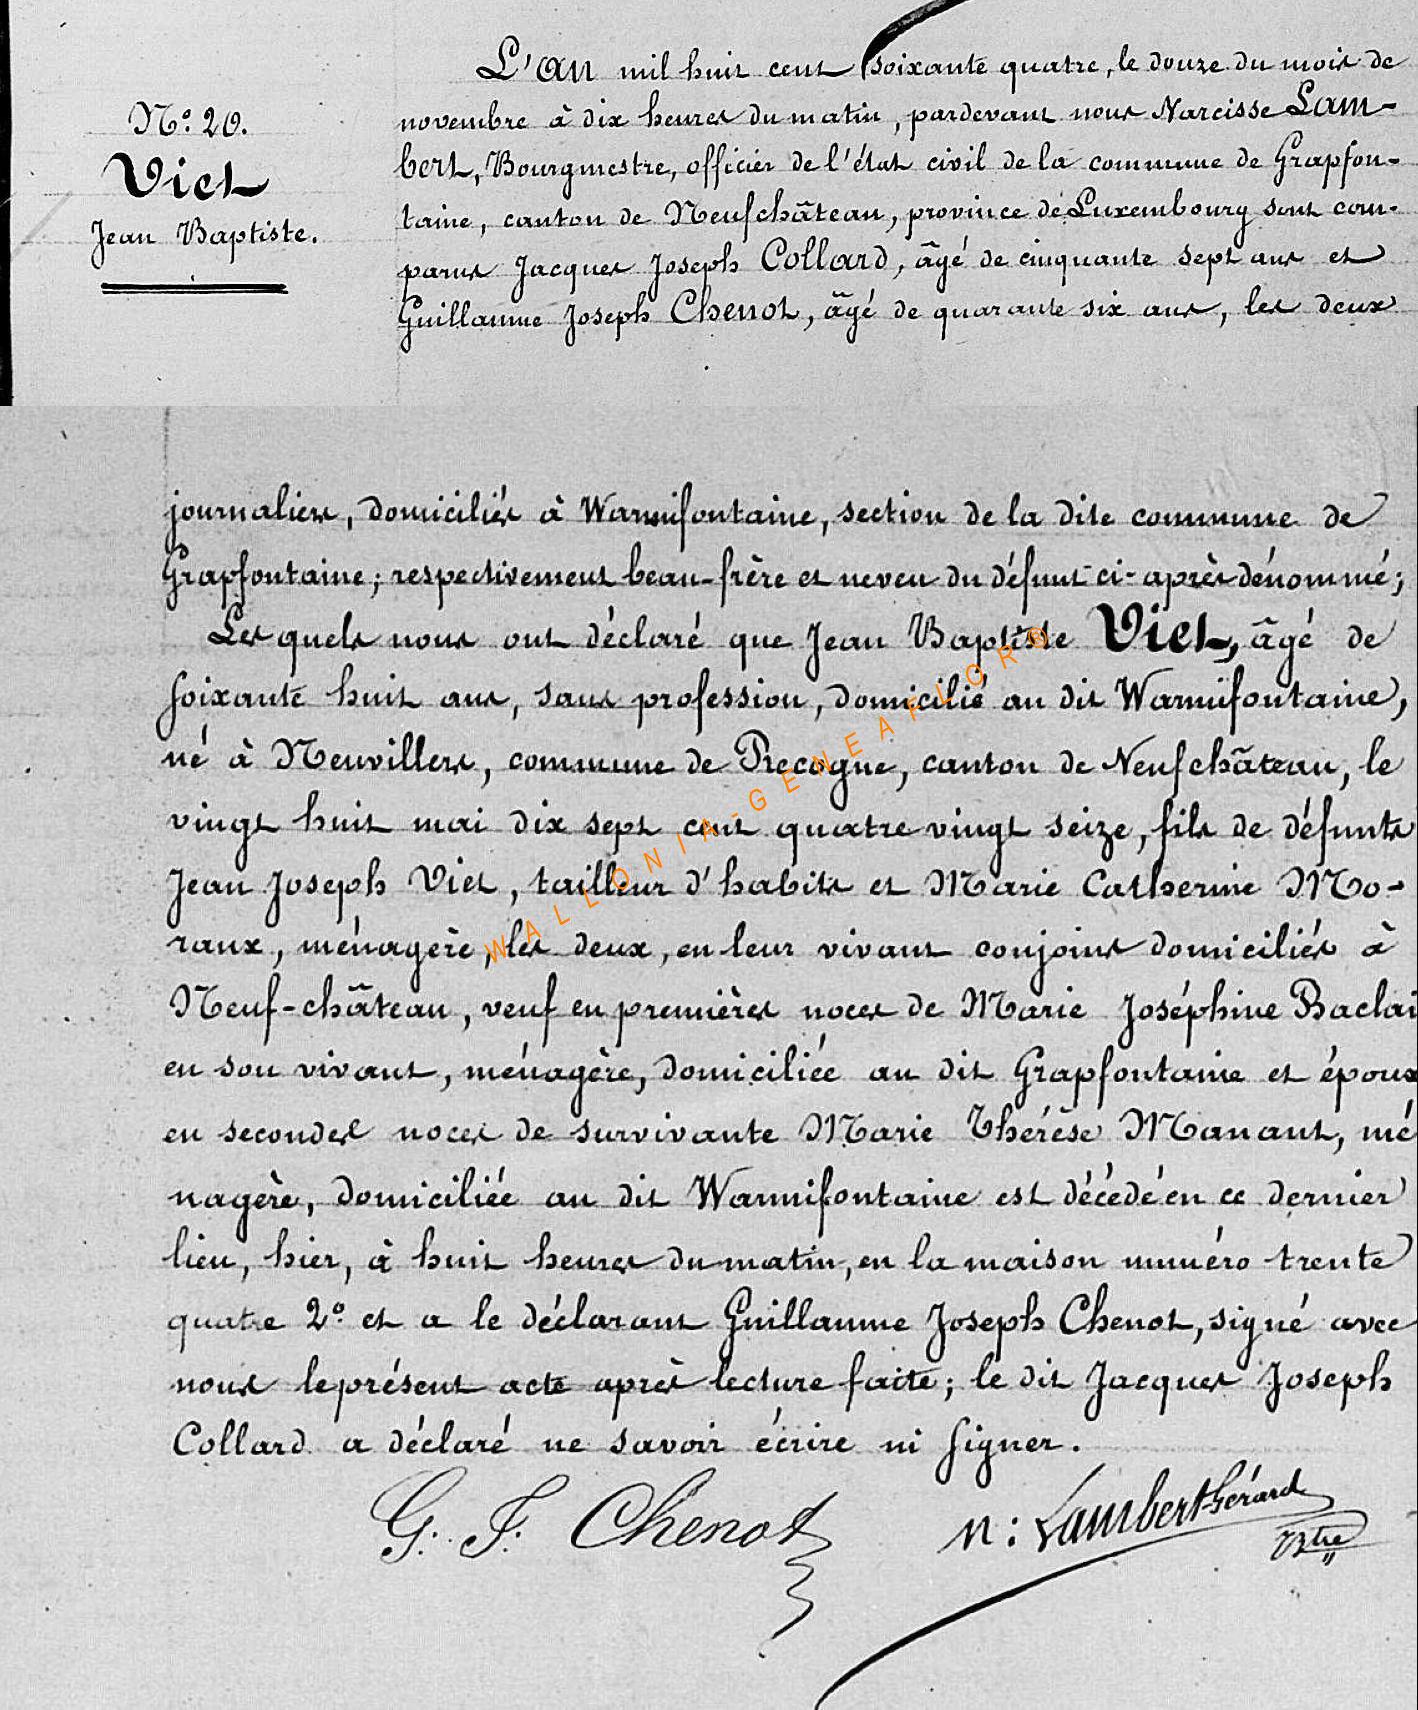 L'an mil huit cent soixante quatre, le douze du mois de
N.º 20.
novembre à dix heures du matin, pardevant nous Narcisse Lam-
Viet
bert, Bourgmestre, officier de l'état civil de la commune de Grapfon-
taine, canton de Neufchâteau, province de Luxembourg sont com-
Jean Baptiste.
parus Jacques Joseph Collard, âgé de cinquante sept ans et
Guillaume Joseph Chenot, âgé de quarante six ans, les deux
journaliers, domiciliés à Warmifontaine, section de la dite commune de
Grapfontaine; respectivement beau-frère et neveu du défunt ci-après dénommé;
Lesquels nous ont déclaré que Jean Baptiste Viet, âgé de
soixante huit ans, sans profession, domicilié au dit Warmifontaine,
né à Neuvillers, commune de Recogne, canton de Neufchâteau, le
vingt huit mai dix sept cent quatre vingt seize, fils de défunts
Jean Joseph Viet, tailleur d'habits et Marie Catherine Mo-
raux, ménagère, les deux, en leur vivant conjoints domiciliés à
Neuf-château, veuf en premières noces de Marie Joséphine Baclai
en son vivant, ménagère, domiciliée au dit Grapfontaine et époux
en secondes noces de survivante Marie Thérèse Manant, mé
nagère, domiciliée au dit Warmifontaine est décédé en ce dernier
lieu, hier, à huit heures du matin, en la maison numéro trente
quatre 2º et a le déclarant Guillaume Joseph Chenot, signé avec
nous le présent acte après lecture faite; le dit Jacques Joseph
Collard a déclaré ne savoir écrire ni signer.
G. J. Chenot
N: Lambert Gérard
Btre
WALLONIA-GENEAFLOR®